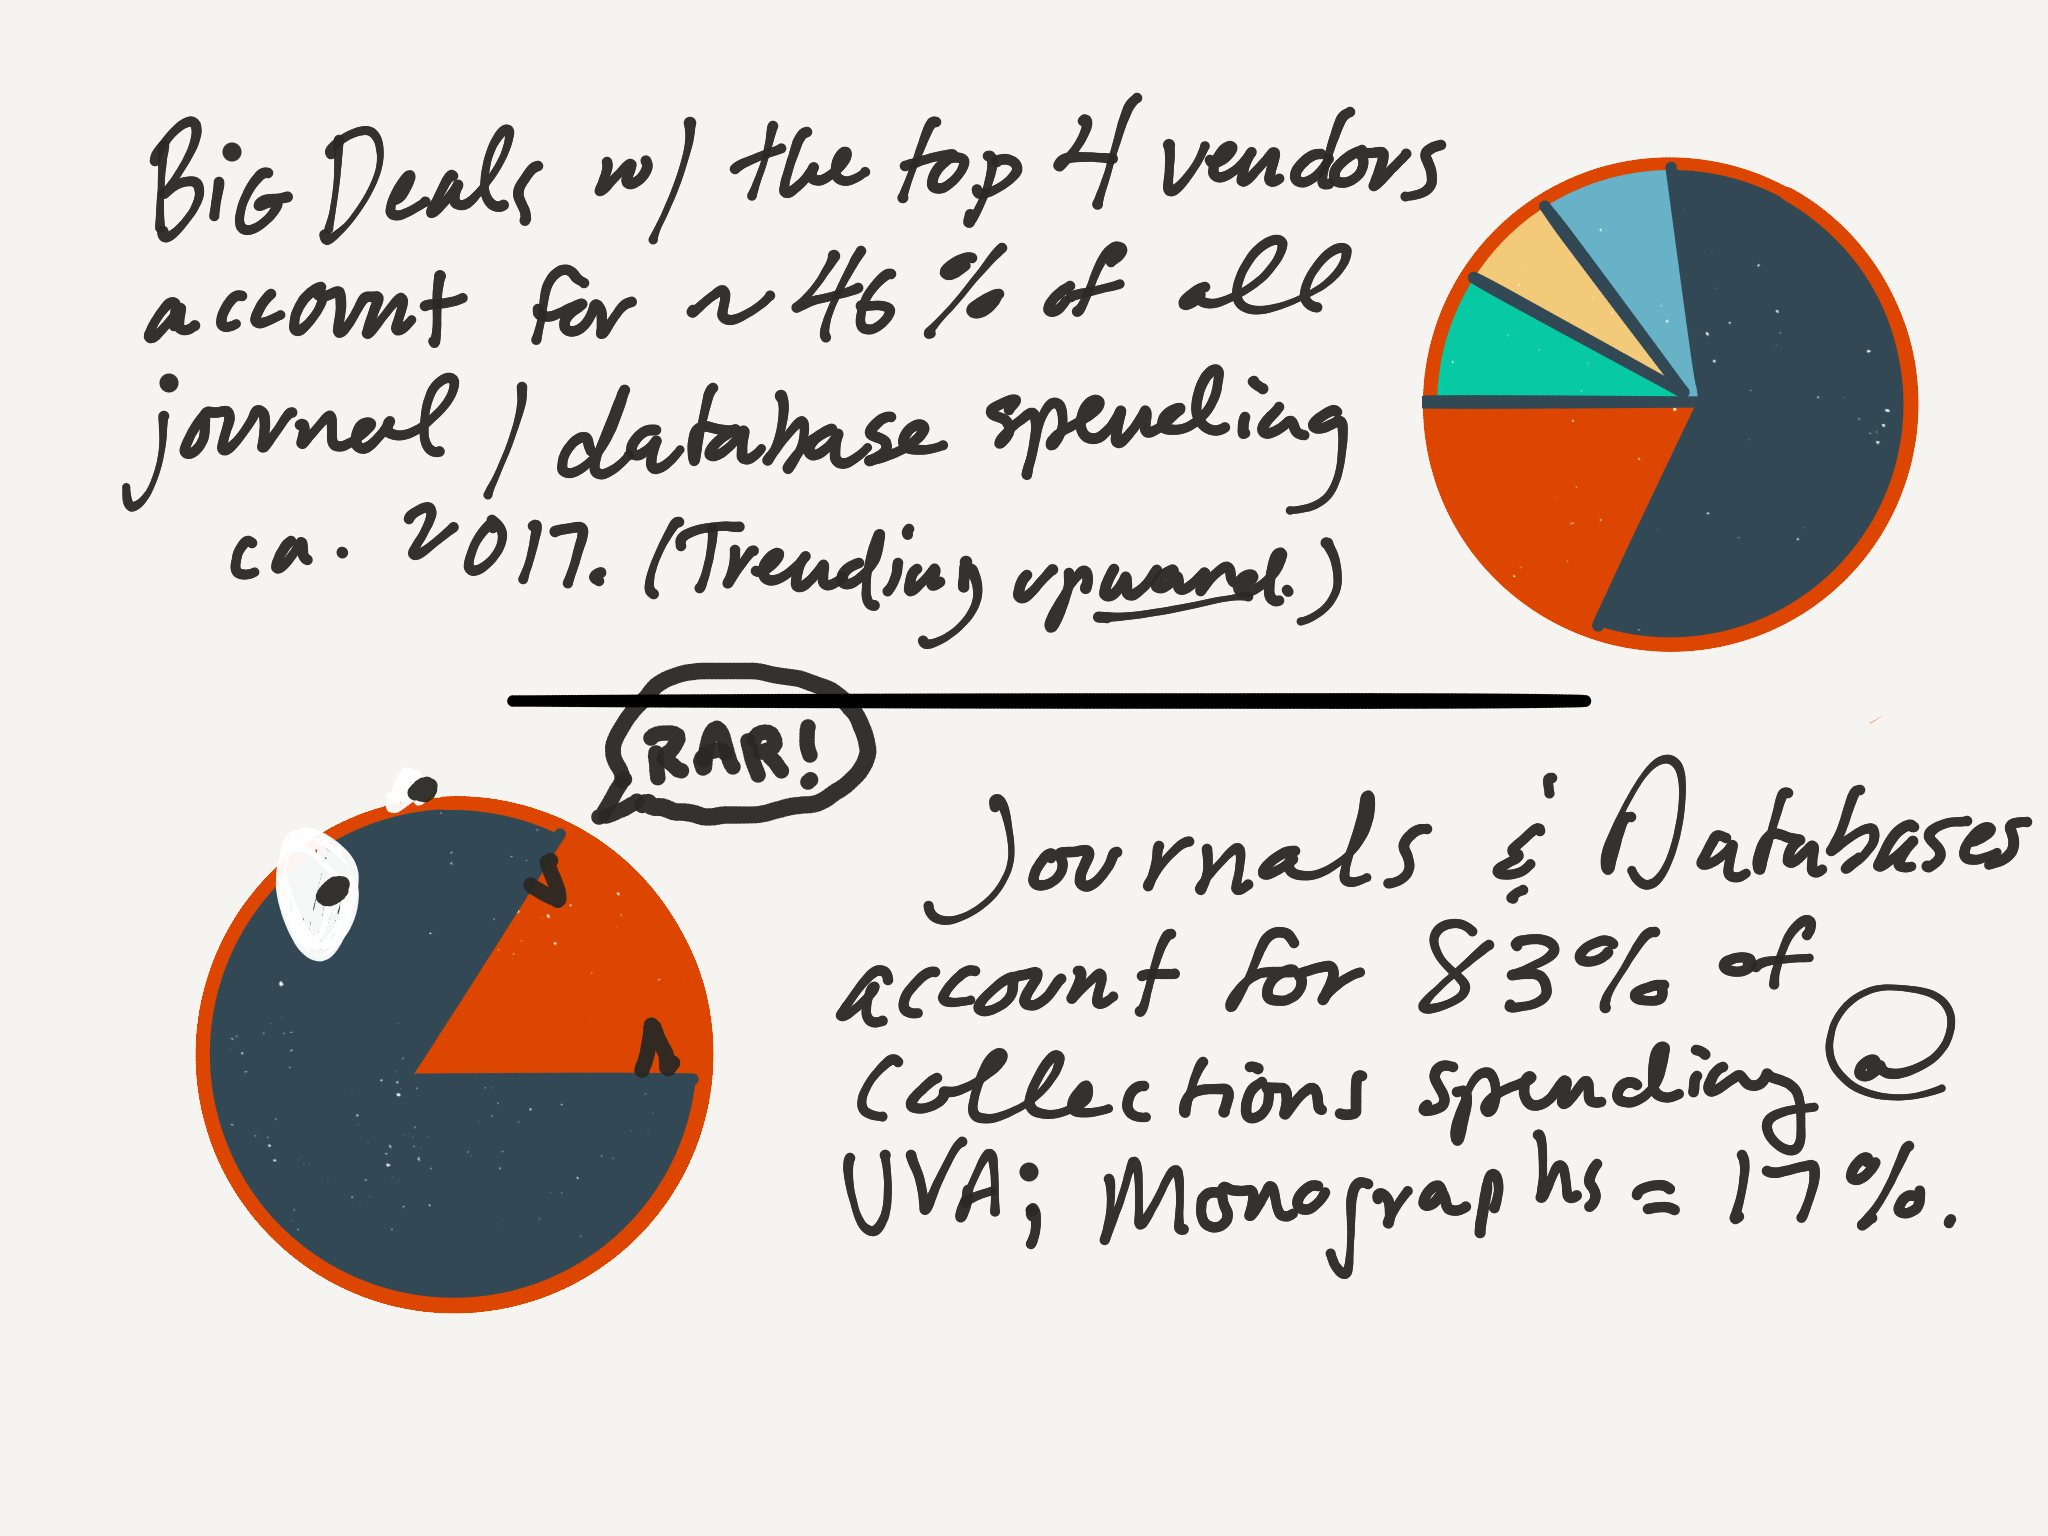 BiG Deals w/ the top 4 vendors
account for ~46% of all
journal / database spending
ca. 2017. (Trending upward.)
RAR!
Journals & Databases
account for 83% of
collections spending @
UVA; Monographs = 17%.